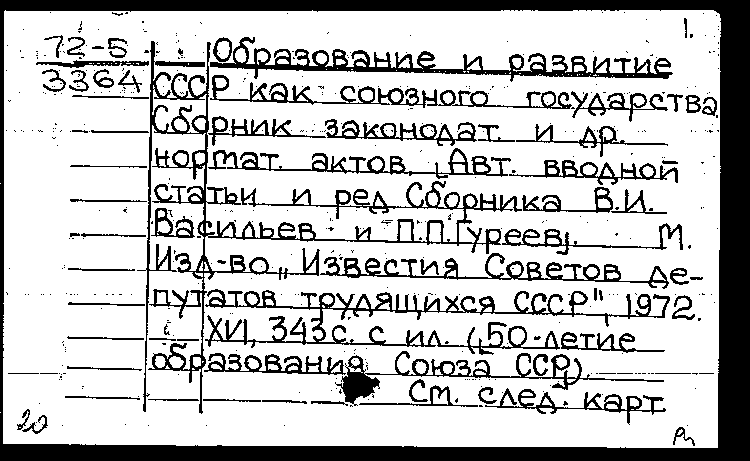 1.
72-5 Образование и развитие
3364 СССР как союзного государства
Сборник законодат. и др.
нормат. актов. [Авт. вводной
статьи и ред Сборника В.И.
Васильев и П.П.Гуреев]. М.
Изд-во „Известия Советов де-
путатов трудящихся СССР", 1972.
XVI, 343с. с ил. ([50-летие
образования Союза ССР])
См. след. карт
20